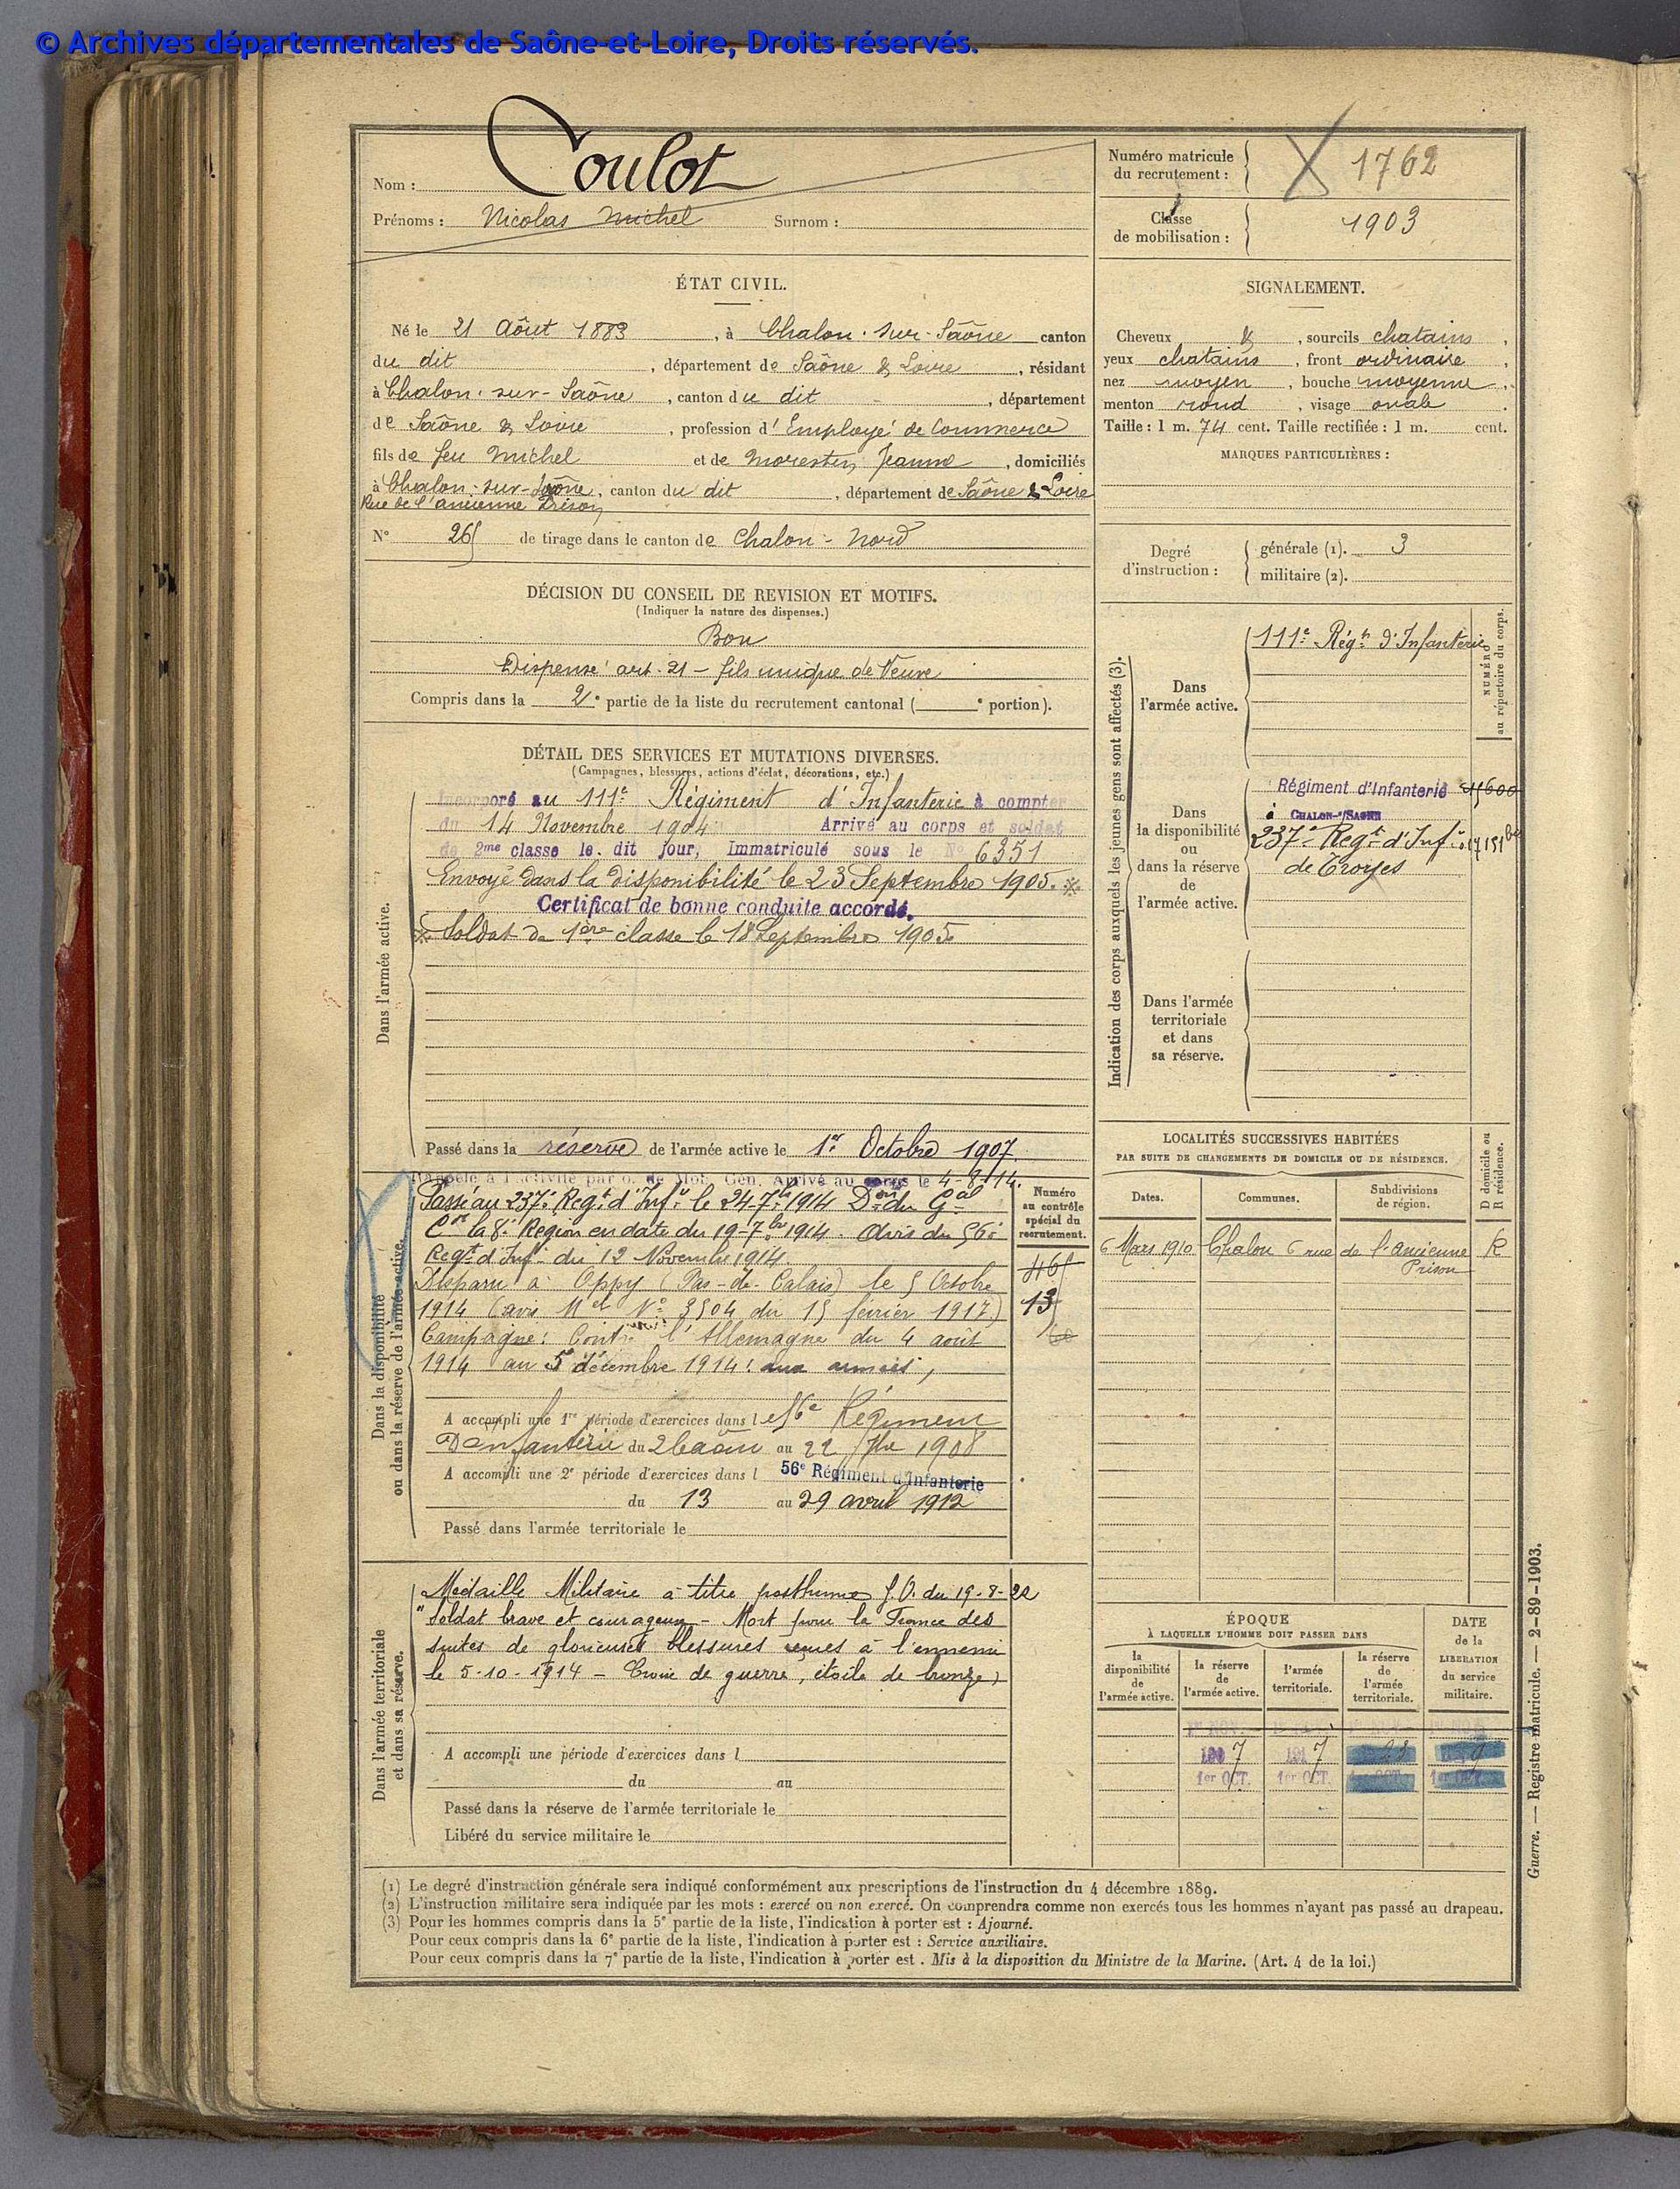 © Archives départementales de Saône-et-Loire, Droits réservés.
Nom : Coulot
Prénoms : Nicolas Michel Surnom :
Numéro matricule du recrutement : 1762
Classe de mobilisation : 1903
ÉTAT CIVIL.
Né le 21 Août 1883, à Chalon-sur-Saône canton
du dit, département de Saône & Loire, résidant
à Chalon-sur-Saône, canton du dit, département
de Saône & Loire, profession d'Employé de Commerce
fils de feu Michel et de Morestin Jeanne, domiciliés
à Chalon-sur-Saône, canton du dit, département de Saône & Loire
Rue de l'ancienne Prison
N° 265 de tirage dans le canton de Chalon-Nord
SIGNALEMENT.
Cheveux &, sourcils chatains,
yeux chatains, front ordinaire,
nez moyen, bouche moyenne,
menton rond, visage ovale.
Taille : 1 m. 74 cent. Taille rectifiée : 1 m. cent.
MARQUES PARTICULIÈRES :
Degré d'instruction : générale (1). 3
militaire (2).
DÉCISION DU CONSEIL DE REVISION ET MOTIFS.
(Indiquer la nature des dispenses.)
Bon
Dispensé art. 21 - fils unique de Veuve
Compris dans la 2e partie de la liste du recrutement cantonal ( e portion).
DÉTAIL DES SERVICES ET MUTATIONS DIVERSES.
(Campagnes, blessures, actions d'éclat, décorations, etc.)
Dans l'armée active.
Incorporé au 111e Régiment d'Infanterie à compter
du 14 Novembre 1904 Arrivé au corps et soldat
de 2me classe le dit jour, Immatriculé sous le N° 6351
Envoyé dans la disponibilité le 23 Septembre 1905. ※
Certificat de bonne conduite accordé.
※ Soldat de 1ère classe le 18 Septembre 1905
Passé dans la réserve de l'armée active le 1er Octobre 1907.
Indication des corps auxquels les jeunes gens sont affectés (3).
NUMÉRO au répertoire du corps.
Dans l'armée active.
111e Régt d'Infanterie
Dans la disponibilité ou dans la réserve de l'armée active.
Régiment d'Infanterie
à CHALON-S/SAONE
237e Regt d'Infie
de Troyes
Dans l'armée territoriale et dans sa réserve.
Dans la disponibilité ou dans la réserve de l'armée active.
Rappelé à l'activité par o. de Mob. Gén. Arrivé au corps le 4-8-14.
Passé au 237e Regt d'Infie le 24-7bre 1914 Don du Gal
Ct la 8e Region en date du 19-7bre 1914. Avis du 56e
Regt d'Infie du 12 Novembre 1914.
Disparu à Oppy (Pas-de-Calais) le 5 Octobre
1914 (avis Mel N° 3504 du 15 février 1917)
Campagne: Contre l'Allemagne du 4 août
1914 au 5 décembre 1914: aux armées,
A accompli une 1re période d'exercices dans le 56e Régiment
D'Infanterie du 26 août au 22 7bre 1908
A accompli une 2e période d'exercices dans l 56e Régiment d'Infanterie
du 13 au 29 avril 1912
Passé dans l'armée territoriale le
Numéro au contrôle spécial du recrutement.
LOCALITÉS SUCCESSIVES HABITÉES
PAR SUITE DE CHANGEMENTS DE DOMICILE OU DE RÉSIDENCE.
D domicile ou R résidence.
Dates. Communes. Subdivisions de région.
6 Mars 1910 Chalon 6 rue de l'Ancienne Prison R
Dans l'armée territoriale et dans sa réserve.
Médaille Militaire à titre posthume J.O. du 19-8-22
"Soldat brave et courageux - Mort pour la France des
suites de glorieuses blessures reçues à l'ennemi
le 5-10-1914 - Croix de guerre, étoile de bronze)
A accompli une période d'exercices dans l
du au
Passé dans la réserve de l'armée territoriale le
Libéré du service militaire le
ÉPOQUE
À LAQUELLE L'HOMME DOIT PASSER DANS
la disponibilité de l'armée active. la réserve de l'armée active. l'armée territoriale. la réserve de l'armée territoriale.
DATE de la LIBÉRATION du service militaire.
1907 1917
1er OCT. 1er OCT.
(1) Le degré d'instruction générale sera indiqué conformément aux prescriptions de l'instruction du 4 décembre 1889.
(2) L'instruction militaire sera indiquée par les mots : exercé ou non exercé. On comprendra comme non exercés tous les hommes n'ayant pas passé au drapeau.
(3) Pour les hommes compris dans la 5e partie de la liste, l'indication à porter est : Ajourné.
Pour ceux compris dans la 6e partie de la liste, l'indication à porter est : Service auxiliaire.
Pour ceux compris dans la 7e partie de la liste, l'indication à porter est . Mis à la disposition du Ministre de la Marine. (Art. 4 de la loi.)
Guerre. — Registre matricule. — 2-89-1903.